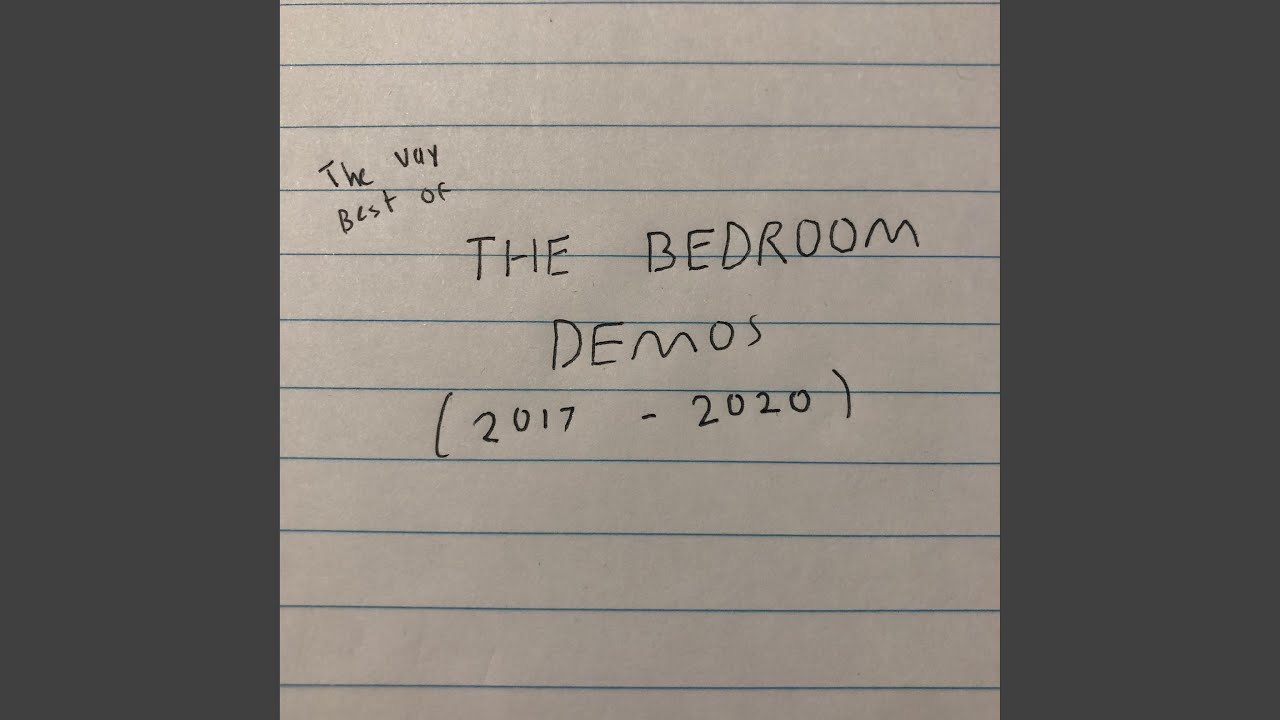 The vary
Best of
THE BEDROOM
DEMOS
(2017 - 2020)